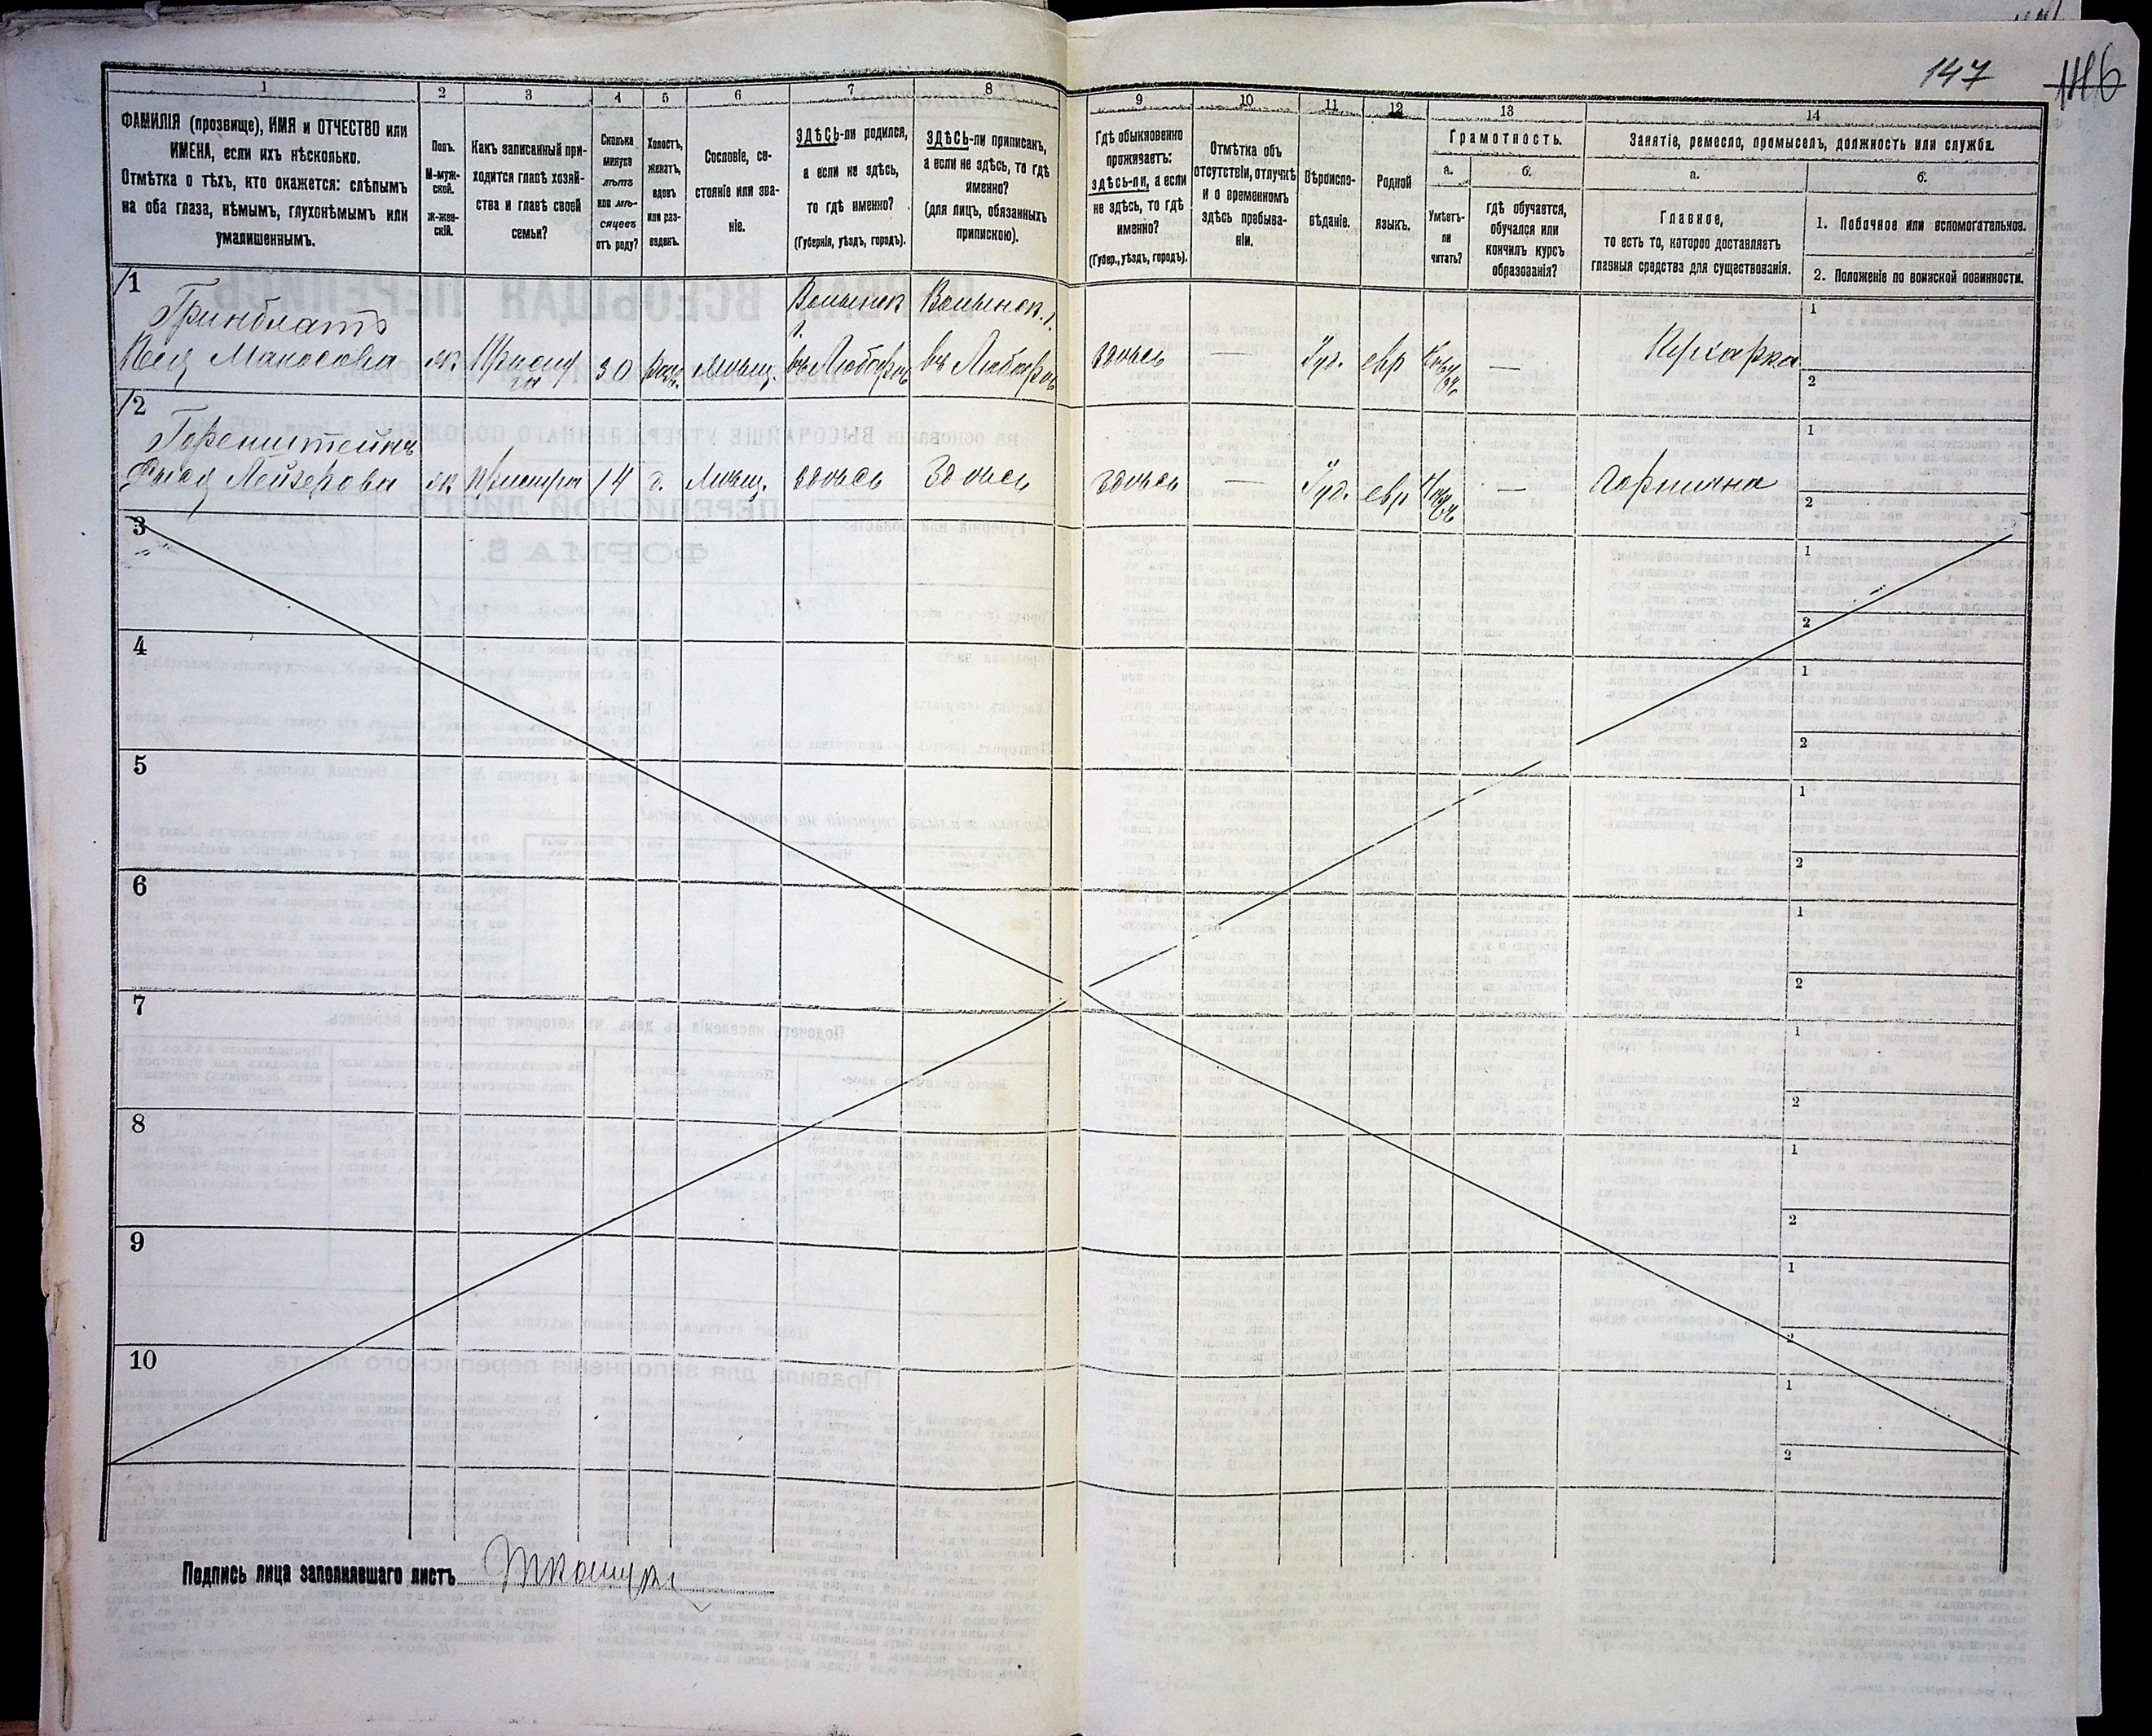 147
146
1
2
3
4
5
6
7
8
9
10
11
12
13
14
ФАМИЛІЯ (прозвище), ИМЯ и ОТЧЕСТВО или
ИМЕНА, если ихъ нѣсколько.
Отмѣтка о тѣхъ, кто окажется: слѣпымъ
на оба глаза, нѣмымъ, глухонѣмымъ или
умалишеннымъ.
Полъ.
М-муж-
ской.
Ж-жен-
скій.
Какъ записанный при-
ходится главѣ хозяй-
ства и главѣ своей
семьи?
Сколько
минуло
лѣтъ
или мѣ-
сяцевъ
отъ роду?
Холостъ,
женатъ,
вдовъ
или раз-
веденъ.
Сословіе, со-
стояніе или зва-
ніе.
ЗДѢСЬ-ли родился,
а если не здѣсь,
то гдѣ именно?
(Губернія, уѣздъ, городъ).
ЗДѢСЬ-ли приписанъ,
а если не здѣсь, то гдѣ
именно?
(для лицъ, обязанныхъ
припискою).
Гдѣ обыкновенно
проживаетъ:
здѣсь-ли, а если
не здѣсь, то гдѣ
именно?
(Губер., уѣздъ, городъ).
Отмѣтка объ
отсутствіи, отлучкѣ
и о временномъ
здѣсь пребыва-
ніи.
Вѣроиспо-
вѣданіе.
Родной
языкъ.
Грамотность.
а.
Умѣетъ-
ли
читать?
б.
гдѣ обучается,
обучался или
кончилъ курсъ
образованія?
Занятіе, ремесло, промыселъ, должность или служба.
а.
Главное,
то есть то, которое доставляетъ
главныя средства для существованія.
б.
1. Побочное или вспомогательное.
2. Положеніе по воинской повинности.
1
Гринблатъ
Маносова
ж
30
мѣщ.
Волынск
г.
въ Любарѣ
Волынск. г.
въ Любарѣ
здѣсь
—
Іуд.
евр
—
Кухарка
1
2
2
Горенштейнъ
Лейзерова
ж
14
д.
Мѣщ.
здѣсь
Здѣсь
здѣсь
—
Іуд.
евр
—
Горнична
1
2
3
1
2
4
1
2
5
1
2
6
1
2
7
1
2
8
1
2
9
1
2
10
1
2
Подпись лица заполнявшаго листъ